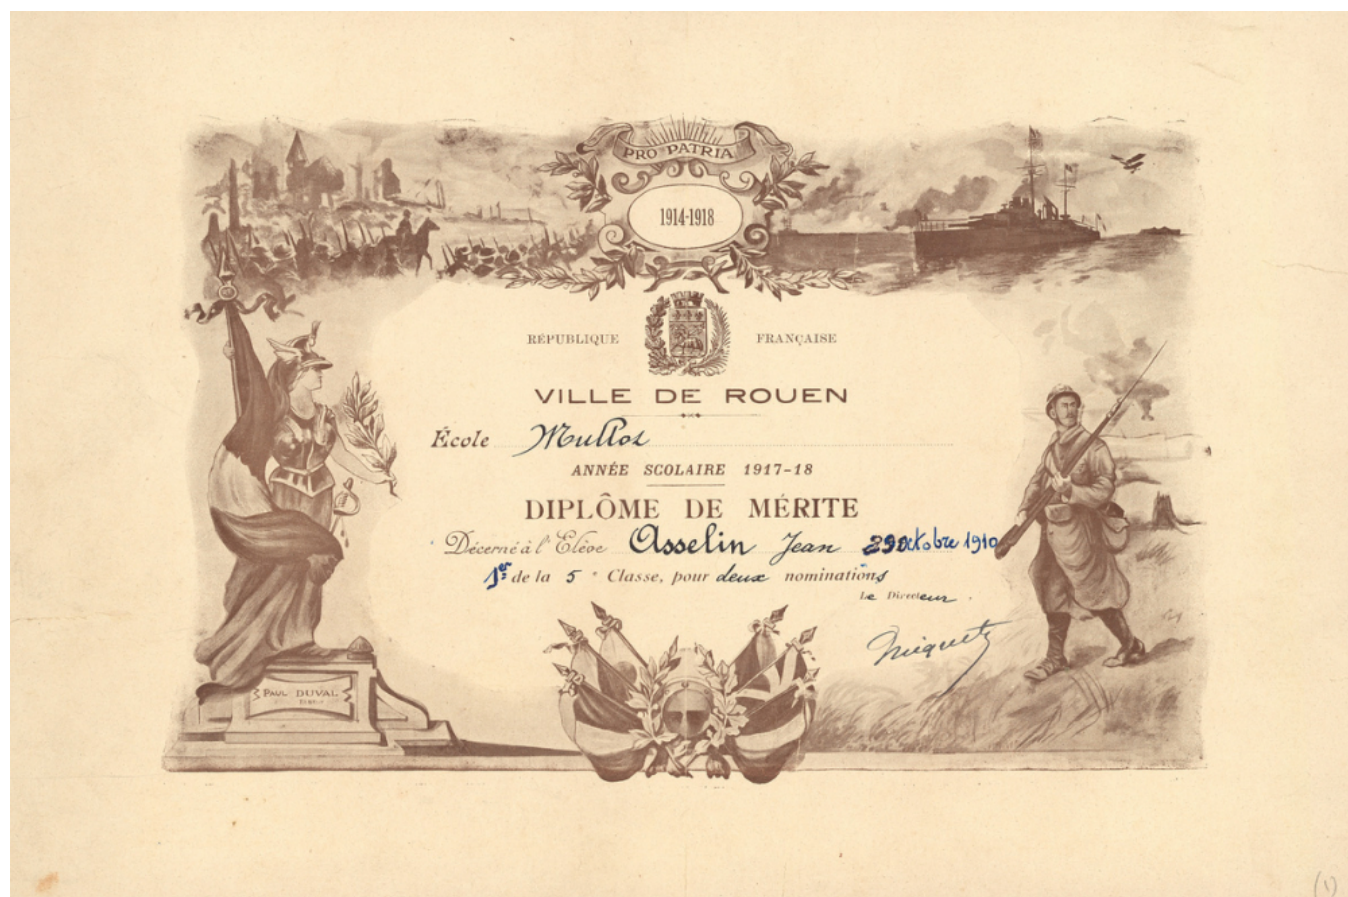 PRO PATRIA
1914-1918
RÉPUBLIQUE FRANÇAISE
VILLE DE ROUEN
École Mullot
ANNÉE SCOLAIRE 1917-18
DIPLÔME DE MÉRITE
Décerné à l'Élève Asselin Jean 29 octobre 1910
1er de la 5e Classe, pour deux nominations
Le Directeur
PAUL DUVAL
(1)